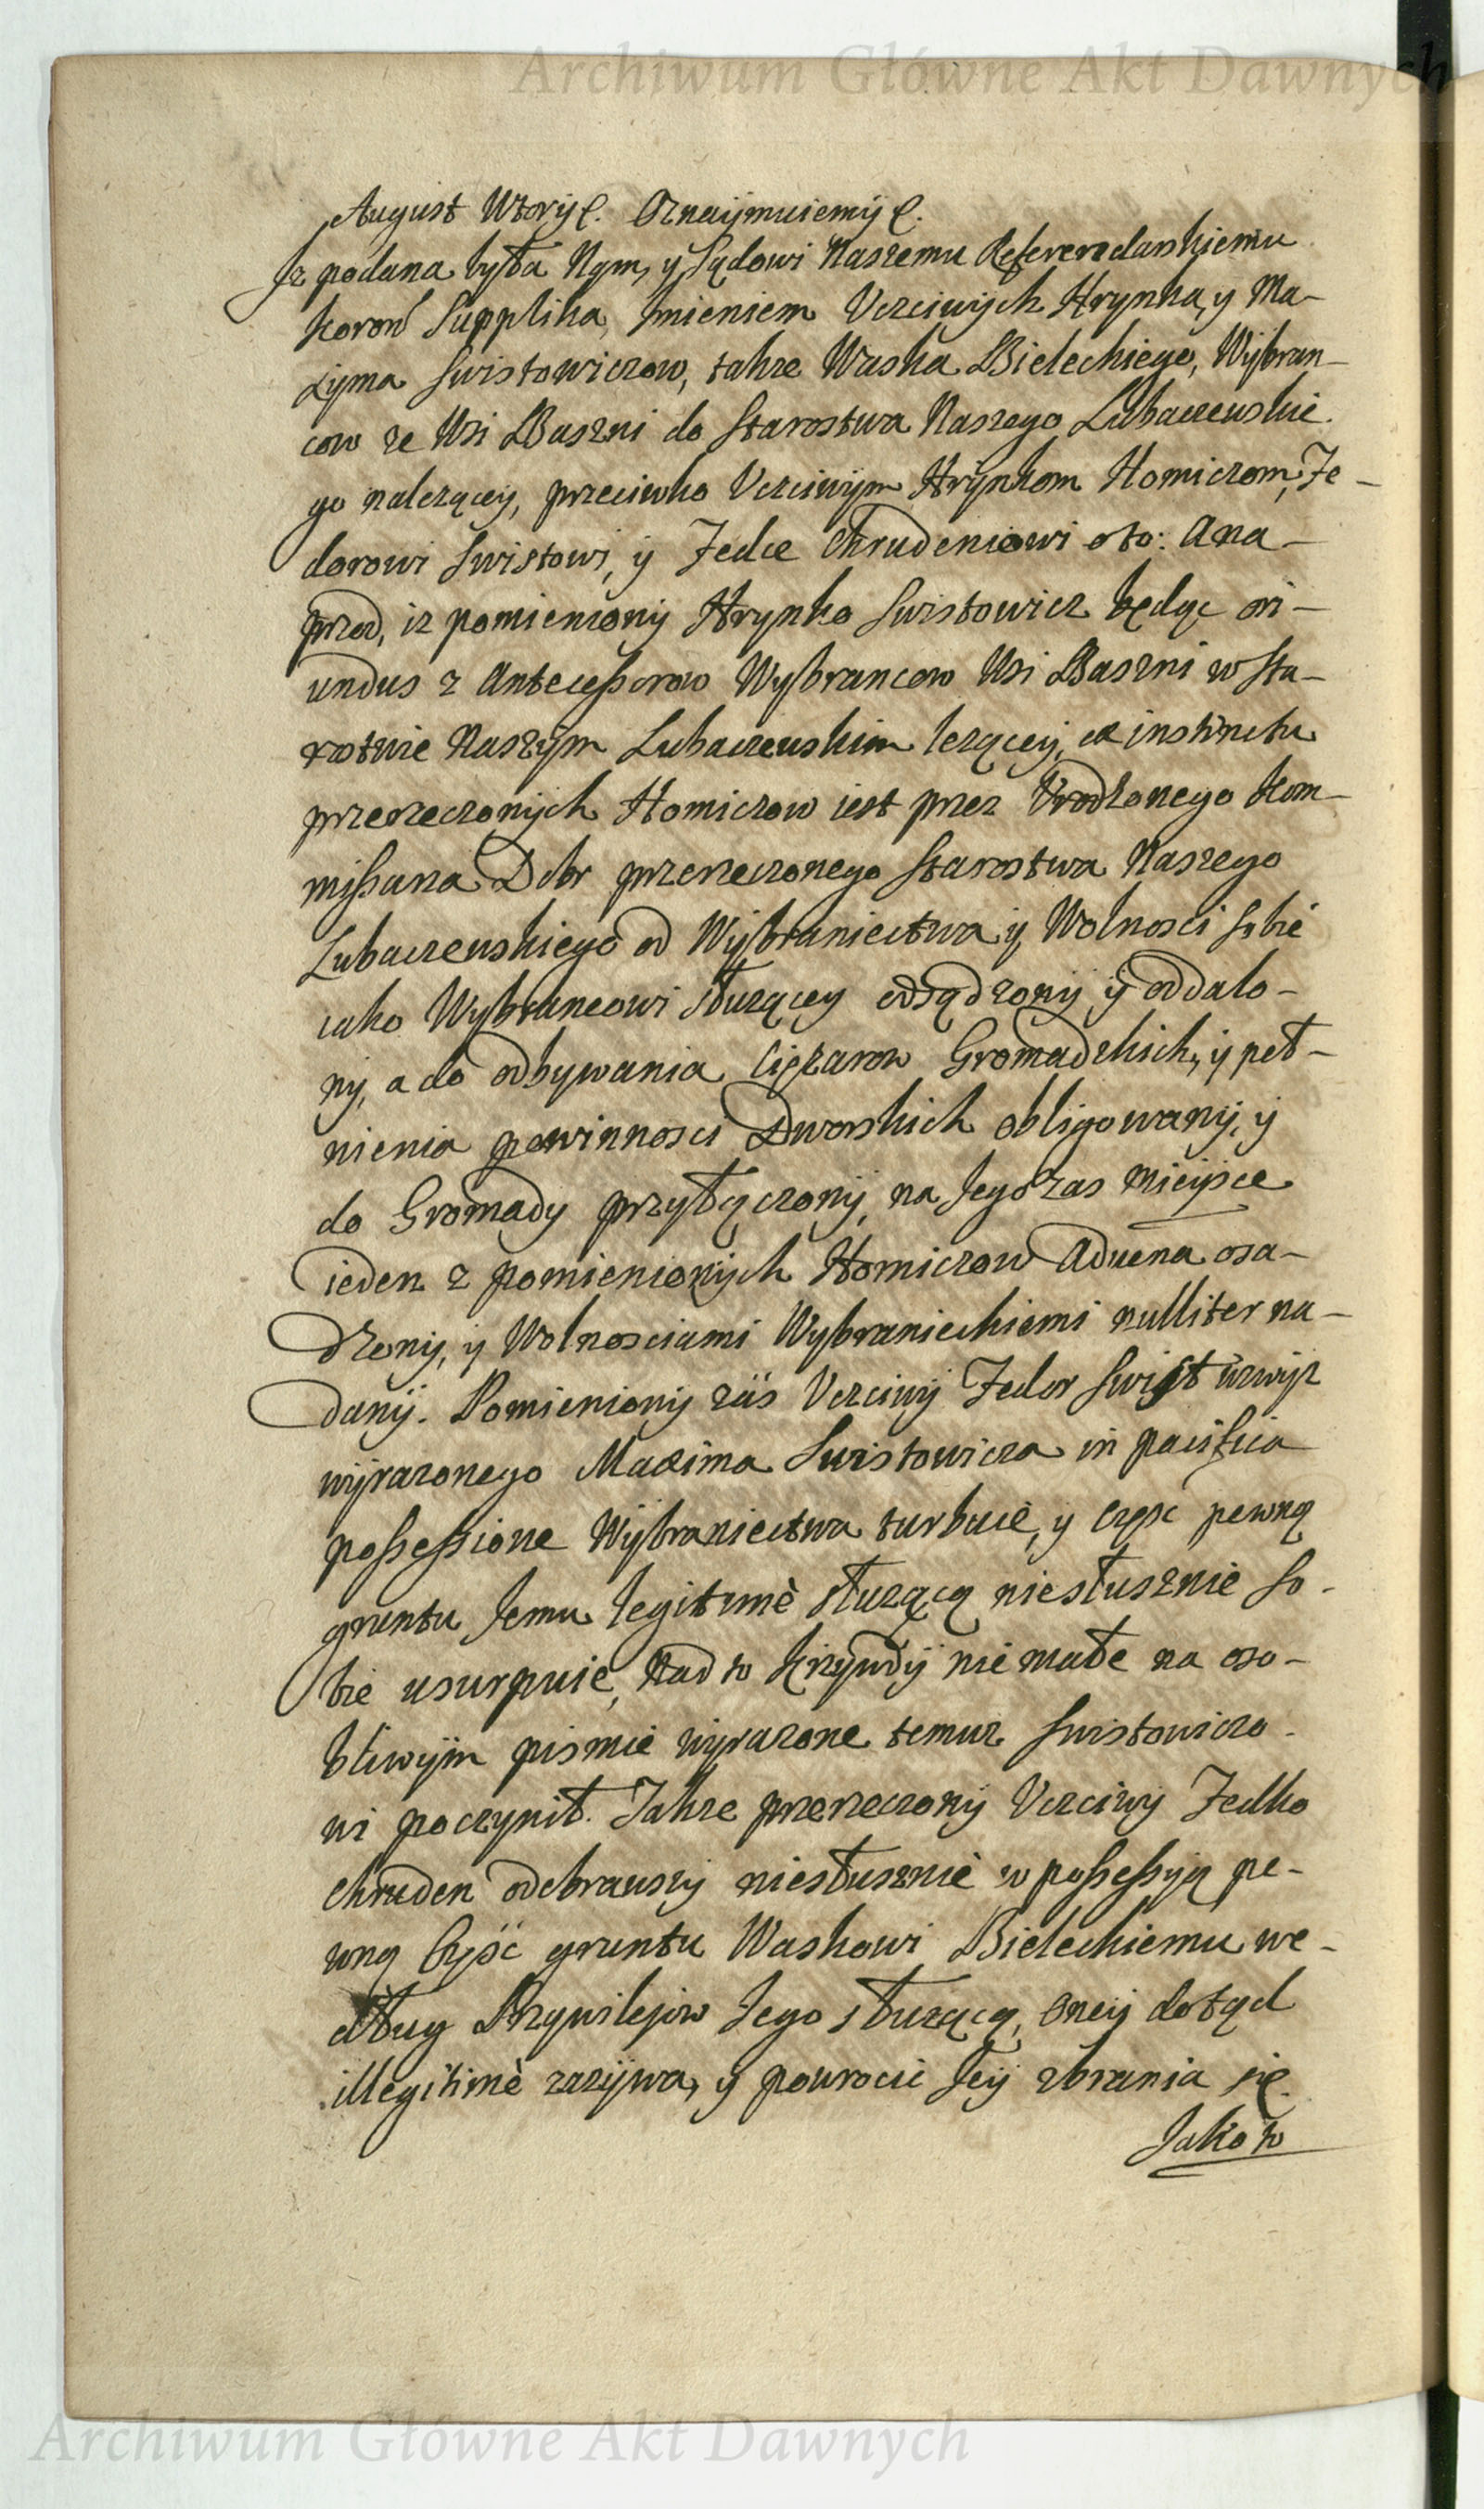 Archiwum Główne Akt Dawnych
August Wtory &. Oznaymuiemy &.
Iz podana była Nam, y Sądowi Naszemu Referendarskiemu
Koron Supplika, Imieniem Uczciwych Hrynka, y Ma-
xyma Swistowiczow, takze Waska Bieleckiego, Wybran-
cow ze Wsi Baszni do Starostwa Naszego Lubaczewskie.
go nalezącey, przeciwko Uczciwym Hrynkom Homiczom, Fe-
dorowi Swistowi, y Fedce Chrudeniowi oto: Ana-
przod, iz pomieniony Hrynko Swistowicz będąc ori-
undus z Antecessorow Wybrancow Wsi Baszni w Sta-
rostwie Naszym Lubaczewskim lezącey, ex instinctu
przerzeczonych Homiczow iest przez Urodzonego Kom-
missarza Dobr przerzeczonego Starostwa Naszego
Lubaczewskiego od Wybraniectwa y Wolnosci sobie
iako Wybrancowi słuzącey odsądzony y oddalo-
ny, a do odbywania Cięzarow Gromadzkich, y peł-
nienia powinnosci Dworskich obligowany, y
do Gromady przyłączony, na Iego zas mieysce
ieden z pomienionych Homiczow Advena osa-
dzony, y Wolnosciami Wybranieckiemi nulliter na-
dany. Pomieniony zas Uczciwy Fedor Swist wzwyz
wyrazonego Maxima Swistowicza in pacifica
possessione Wybraniectwa turbuie, y częsc pewną
gruntu Iemu legitimè słuzącą niesłusznie so-
bie usurpuie, Nadto krzywdy niemałe na oso-
bliwym pismie wyrazone temuz Swistowiczo-
wi poczynił. Takze przerzeczony Uczciwy Fedko
Chruden odebrawszy niesłusznie w possessyją pe-
wną Częsc gruntu Waskowi Bieleckiemu we-
dług Przywilejow Iego słuzącą, oney dotąd
illegitimè zazywa, y powrocic Iey zbrania się.
Jako to
Archiwum Główne Akt Dawnych